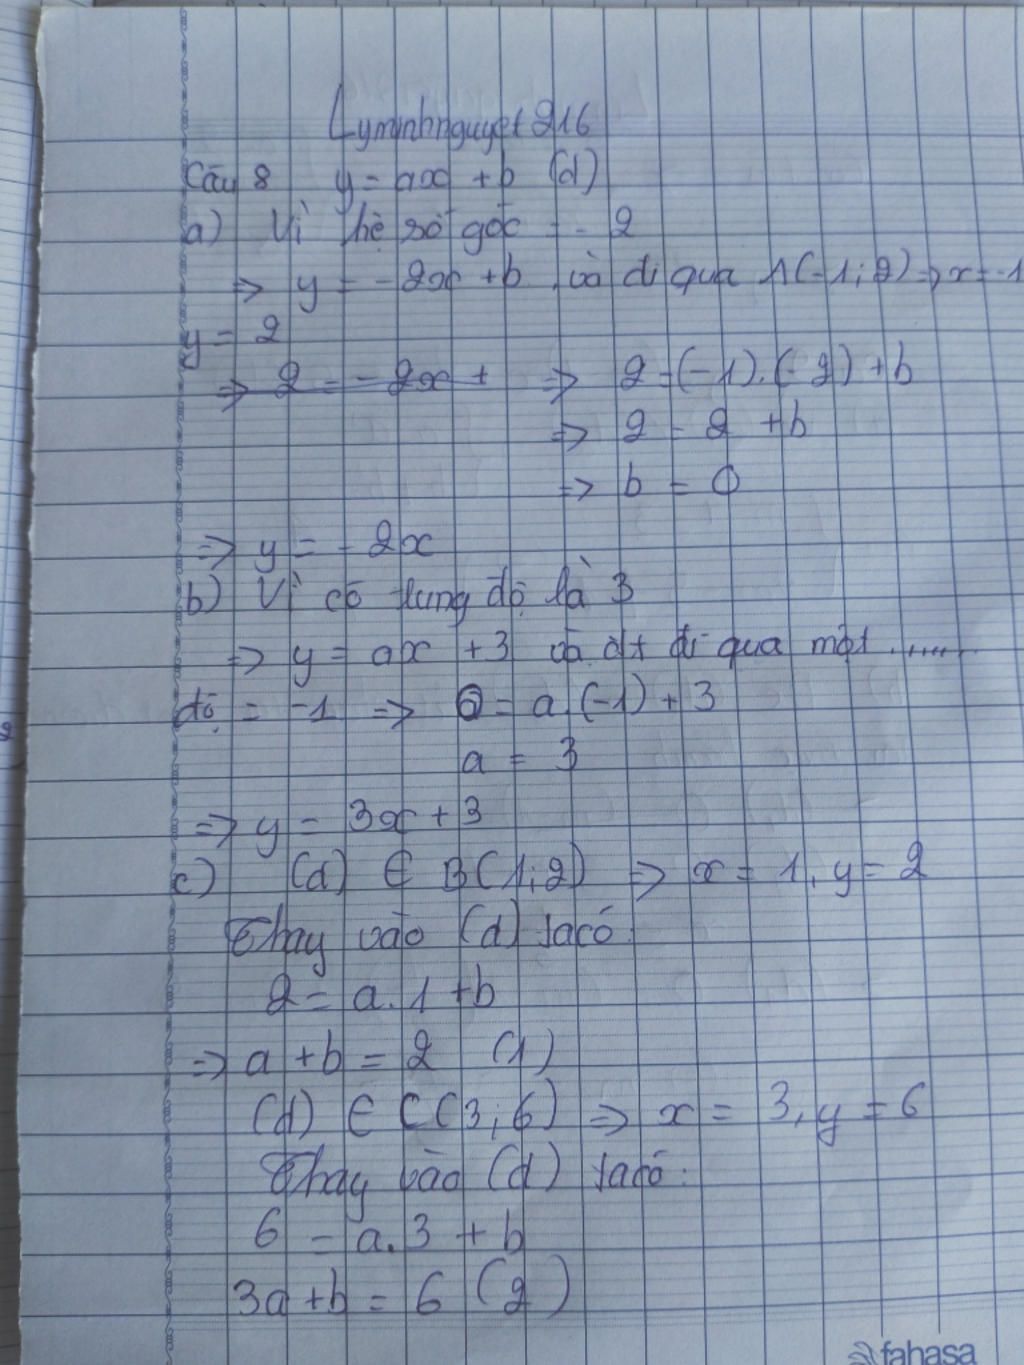 Lyminhnguyet216
Câu 8 y = ax + b (d)
a) Vì hệ số góc = - 2
=> y = - 2x + b và đi qua A(-1; 2) => x = -1
y = 2
=> 2 = - 2x + => 2 = (-1).(-2) + b
=> 2 = 2 + b
=> b = 0
=> y = - 2x
b) Vì có tung độ là 3
=> y = ax + 3 và đt đi qua một .......
độ = -1 => 0 = a.(-1) + 3
a = 3
=> y = 3x + 3
c) (d) ∈ B(1;2) => x = 1, y = 2
Thay vào (d) ta có:
2 = a.1 + b
=> a + b = 2 (1)
(d) ∈ C(3;6) => x = 3, y = 6
Thay vào (d) ta có:
6 = a.3 + b
3a + b = 6 (2)
fahasa